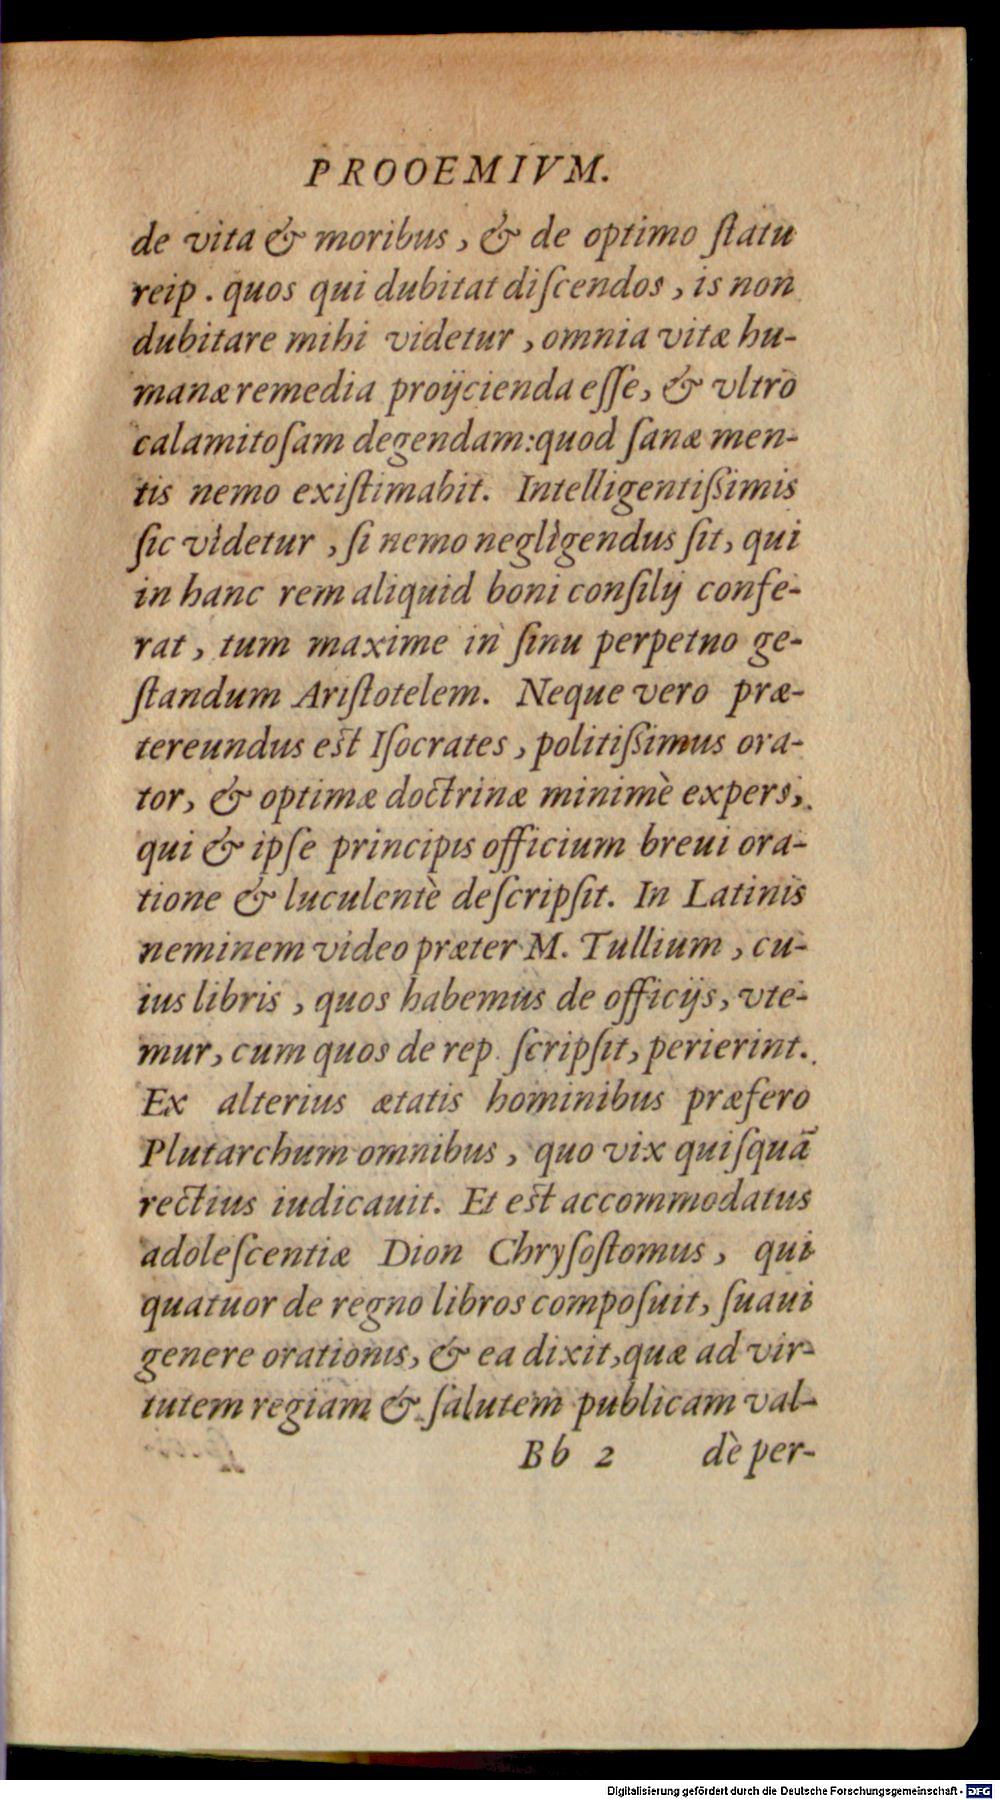 PROOEMIVM.
de vita & moribus, & de optimo ſtatu
reip. quos qui dubitat diſcendos, is non
dubitare mihi videtur, omnia vitæ hu-
manæ remedia proijcienda eſſe, & vltro
calamitoſam degendam: quod ſanæ men-
tis nemo exiſtimabit. Intelligentiſsimis
ſic videtur, ſi nemo negligendus ſit, qui
in hanc rem aliquid boni conſilij confe-
rat, tum maxime in ſinu perpetno ge-
ſtandum Ariſtotelem. Neque vero præ-
tereundus eſt Iſocrates, politiſsimus ora-
tor, & optimæ doctrinæ minimè expers,
qui & ipſe principis officium breui ora-
tione & luculentè deſcripſit. In Latinis
neminem video præter M. Tullium, cu-
ius libris, quos habemus de officijs, vte-
mur, cum quos de rep. ſcripſit, perierint.
Ex alterius ætatis hominibus præfero
Plutarchum omnibus, quo vix quiſquā
rectius iudicauit. Et eſt accommodatus
adoleſcentiæ Dion Chryſoſtomus, qui
quatuor de regno libros compoſuit, ſuaui
genere orationis, & ea dixit, quæ ad vir-
tutem regiam & ſalutem publicam val-
Bb 2 dè per-
Digitalisierung gefördert durch die Deutsche Forschungsgemeinschaft - DFG